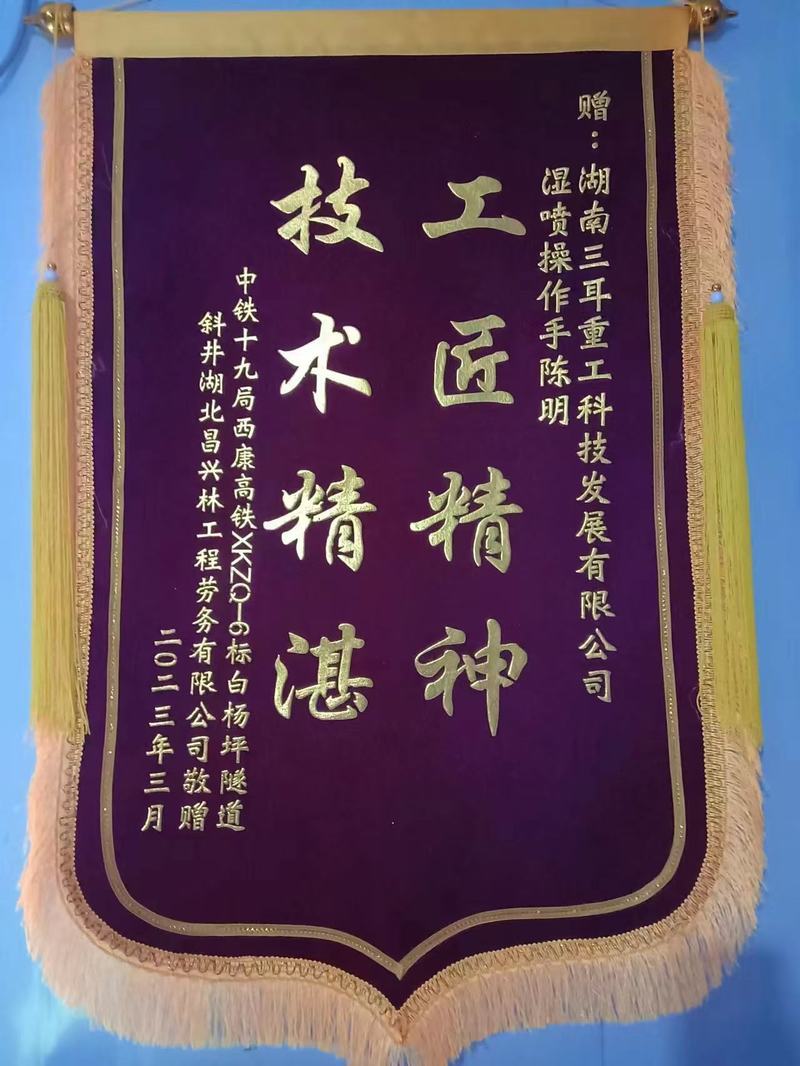 赠：湖南三耳重工科技发展有限公司
湿喷操作手陈明
工匠精神
技术精湛
中铁十九局西康高铁XKZQ-6标白杨坪隧道
斜井湖北昌兴林工程劳务有限公司敬赠
二〇二三年三月